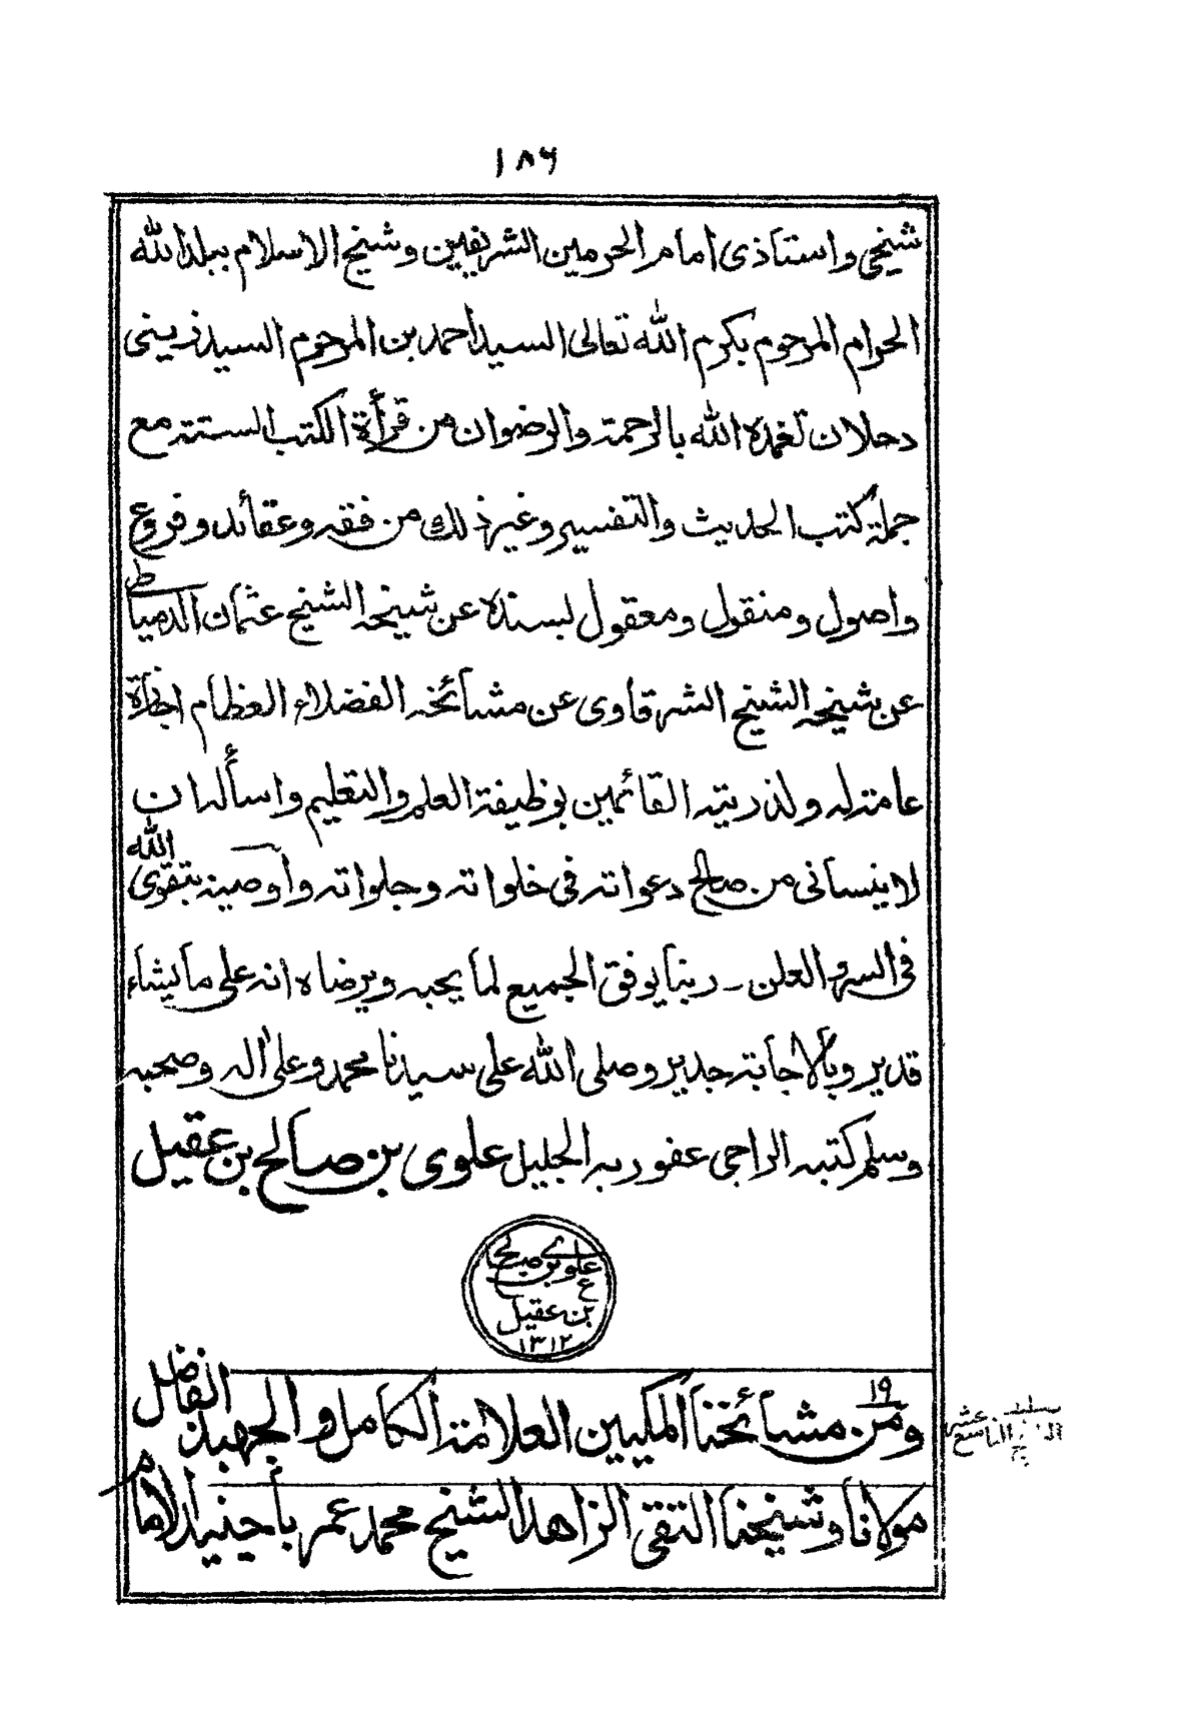 ١٨٦
شيخي واستاذى امام الحرمين الشريفين وشيخ الاسلام ببلد الله
الحرام المرحوم بكرم الله تعالى السيد احمد بن المرحوم السيد زينى
دحلان تغمده الله بالرحمة والرضوان من قرأة الكتب الستة مع
جملة كتب الحديث والتفسير وغير ذلك من فقه وعقائد وفروع
واصول ومنقول ومعقول بسنده عن شيخه الشيخ عثمان الدمياطى
عن شيخه الشيخ الشرقاوى عن مشائخه الفضلاء العظام اجازة
عامة له ولذريته القائمين بوظيفة العلم والتعليم واسأله ان
لا ينسانى من صالح دعواته فى خلواته وجلواته وأوصيه بتقوى الله
فى السر والعلن ـ ربنا يوفق الجميع لما يحبه ويرضاه انه على ما يشاء
قدير وبالاجابة جدير وصلى الله على سيدنا محمد وعلى اله وصحبه
وسلم كتبه الراجى عفو ربه الجليل علوى بن صالح بن عقيل
علوي بن صالح
بن عقيل
١٣١٢
١٩
ومن مشائخنا المكيين العلامة الكامل والجهبذ الفاضل
مولانا وشيخنا التقى الزاهد الشيخ محمد عمر باجنيد الامام
التاسع عشر